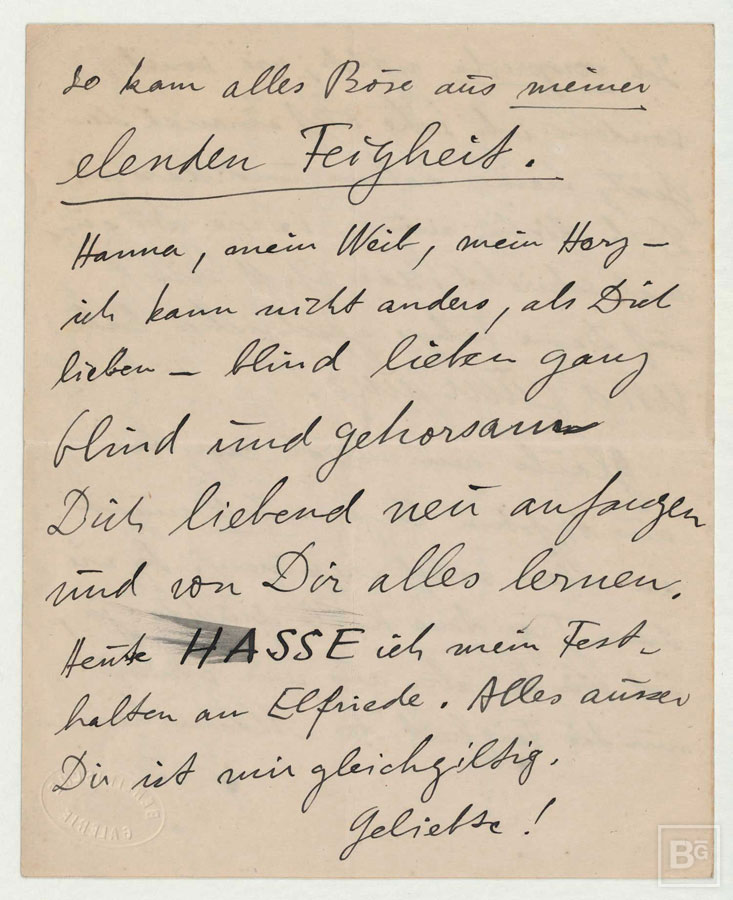 So kam alles Böse aus meiner
elenden Feigheit.
Hanna, mein Weib, mein Herz –
ich kann nicht anders, als Dich
lieben – blind lieben ganz
blind und gehorsam
Dich liebend neu anfangen
und von Dir alles lernen.
Heute HASSE ich mein Fest-
halten an Elfriede. Alles ausser
Dir ist mir gleichgiltig.
Geliebte!
GALERIE
BG